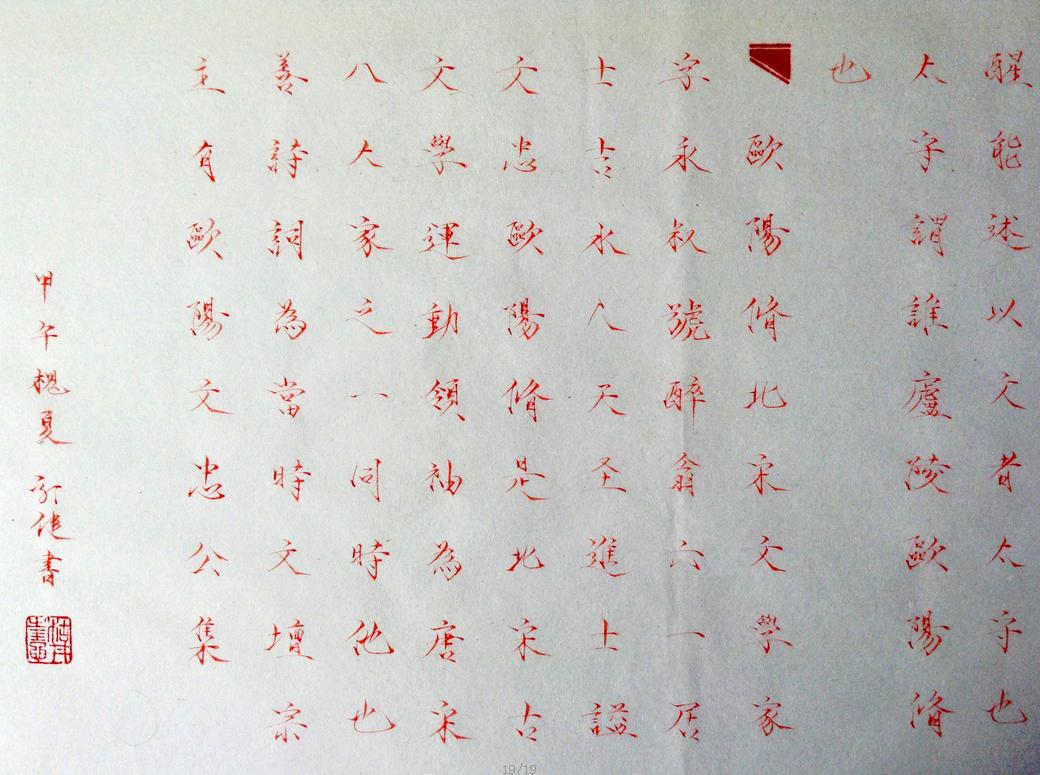 醒能述以文者太守也
太守謂誰廬陵歐陽脩
也
歐陽脩北宋文學家
字永叔號醉翁六一居
士吉永人天圣進士謚
文忠歐陽脩是北宋古
文學運動領袖為唐宋
八大家之一同時他也
善詩詞為當時文壇宗
主有歐陽文忠公集
甲午槐夏 書
19/19